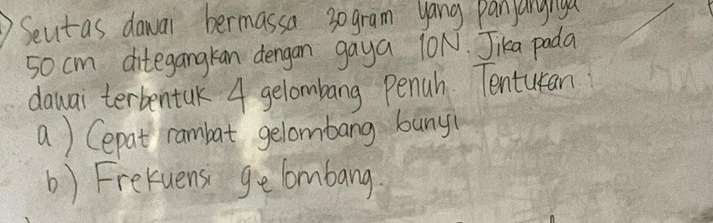 Seutas dawai bermassa 30 gram yang panjangnya
50 cm ditegangkan dengan gaya 10N. Jika pada
dawai terbentuk 4 gelombang penuh. Tentukan :
a) Cepat rambat gelombang bunyi
b) Frekuensi gelombang.